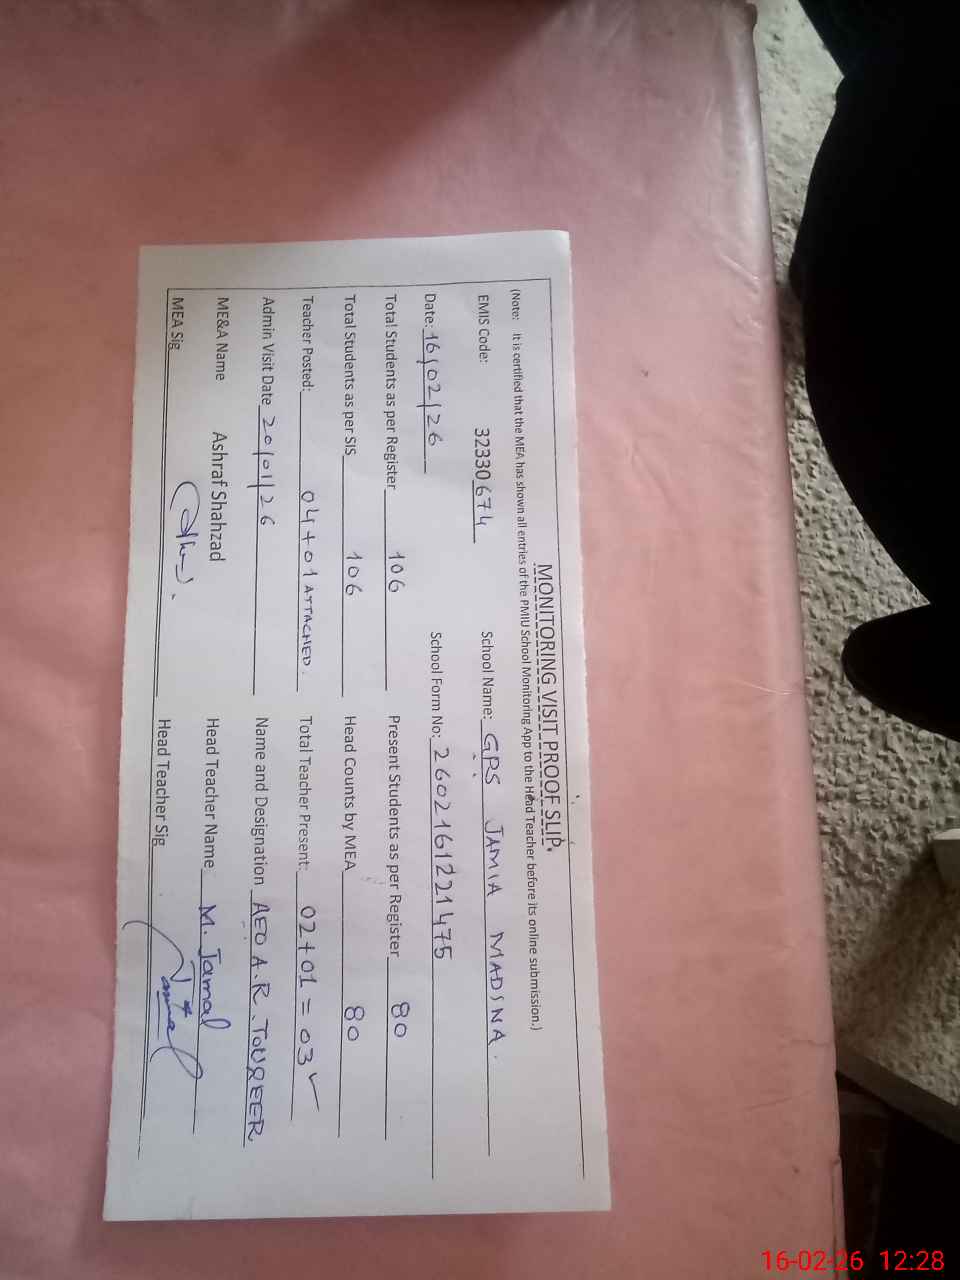 MONITORING VISIT PROOF SLIP.
(Note: It is certified that the MEA has shown all entries of the PMIU School Monitoring App to the Head Teacher before its online submission.)
EMIS Code: 32330674 School Name: GPS JAMIA MADINA.
Date: 16/02/26 School Form No: 2602161221475
Total Students as per Register 106 Present Students as per Register 80
Total Students as per SIS 106 Head Counts by MEA 80
Teacher Posted: 04+01 ATTACHED. Total Teacher Present: 02+01=03 ✓
Admin Visit Date 20/01/26 Name and Designation AEO A.R. TOUQEER
ME&A Name Ashraf Shahzad Head Teacher Name M. Jamal
MEA Sig Head Teacher Sig Jamal
16-02-26 12:28